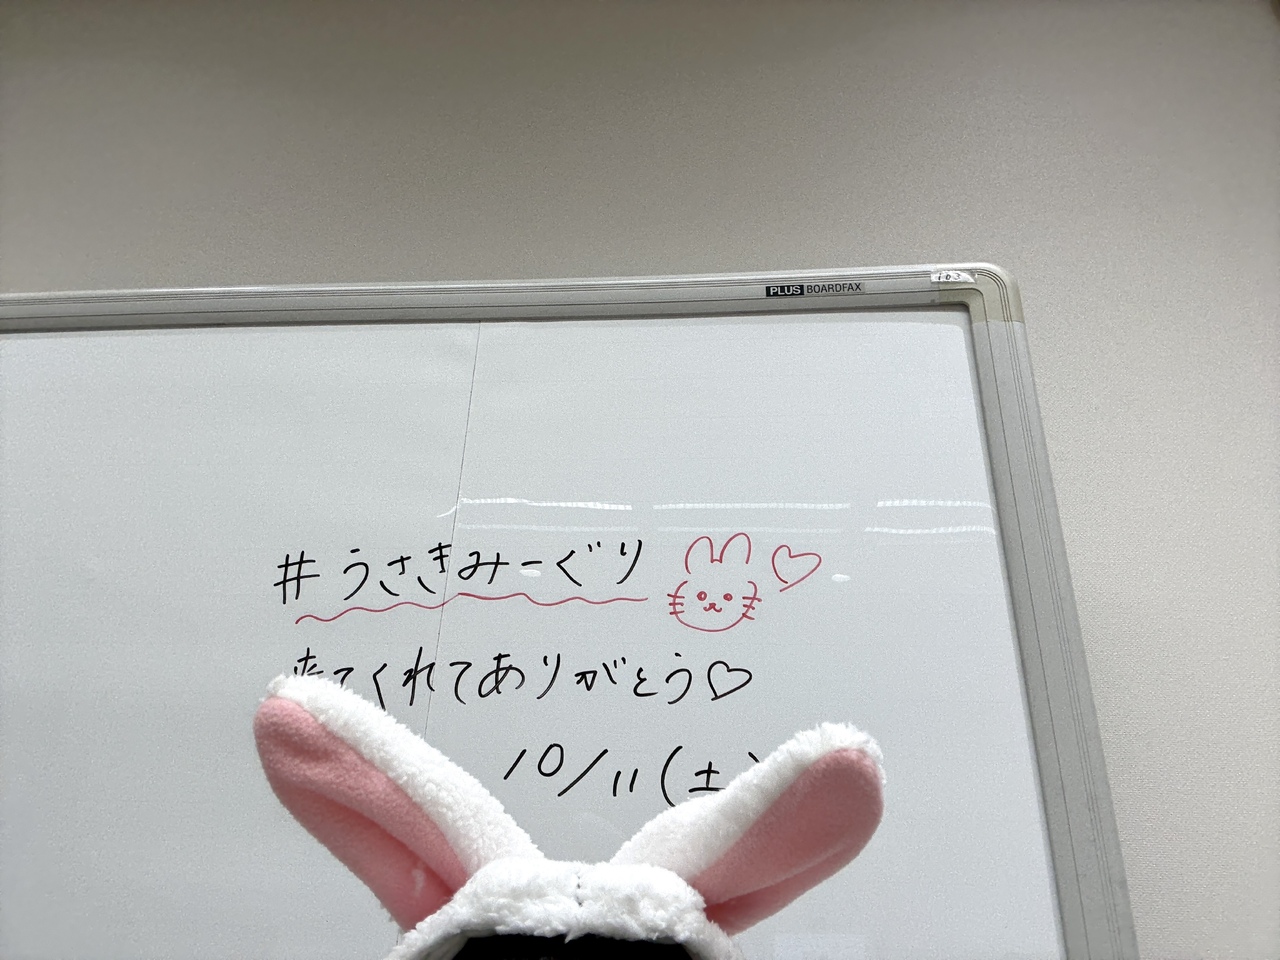 PLUS BOARDFAX
103
#うさぎみーぐり♡
来てくれてありがとう♡
10/11(土)